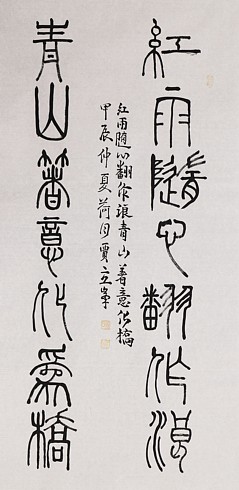 紅雨隨心翻作浪
青山著意化為橋
紅雨隨心翻作浪青山著意化橋
甲辰仲夏荷月賈立